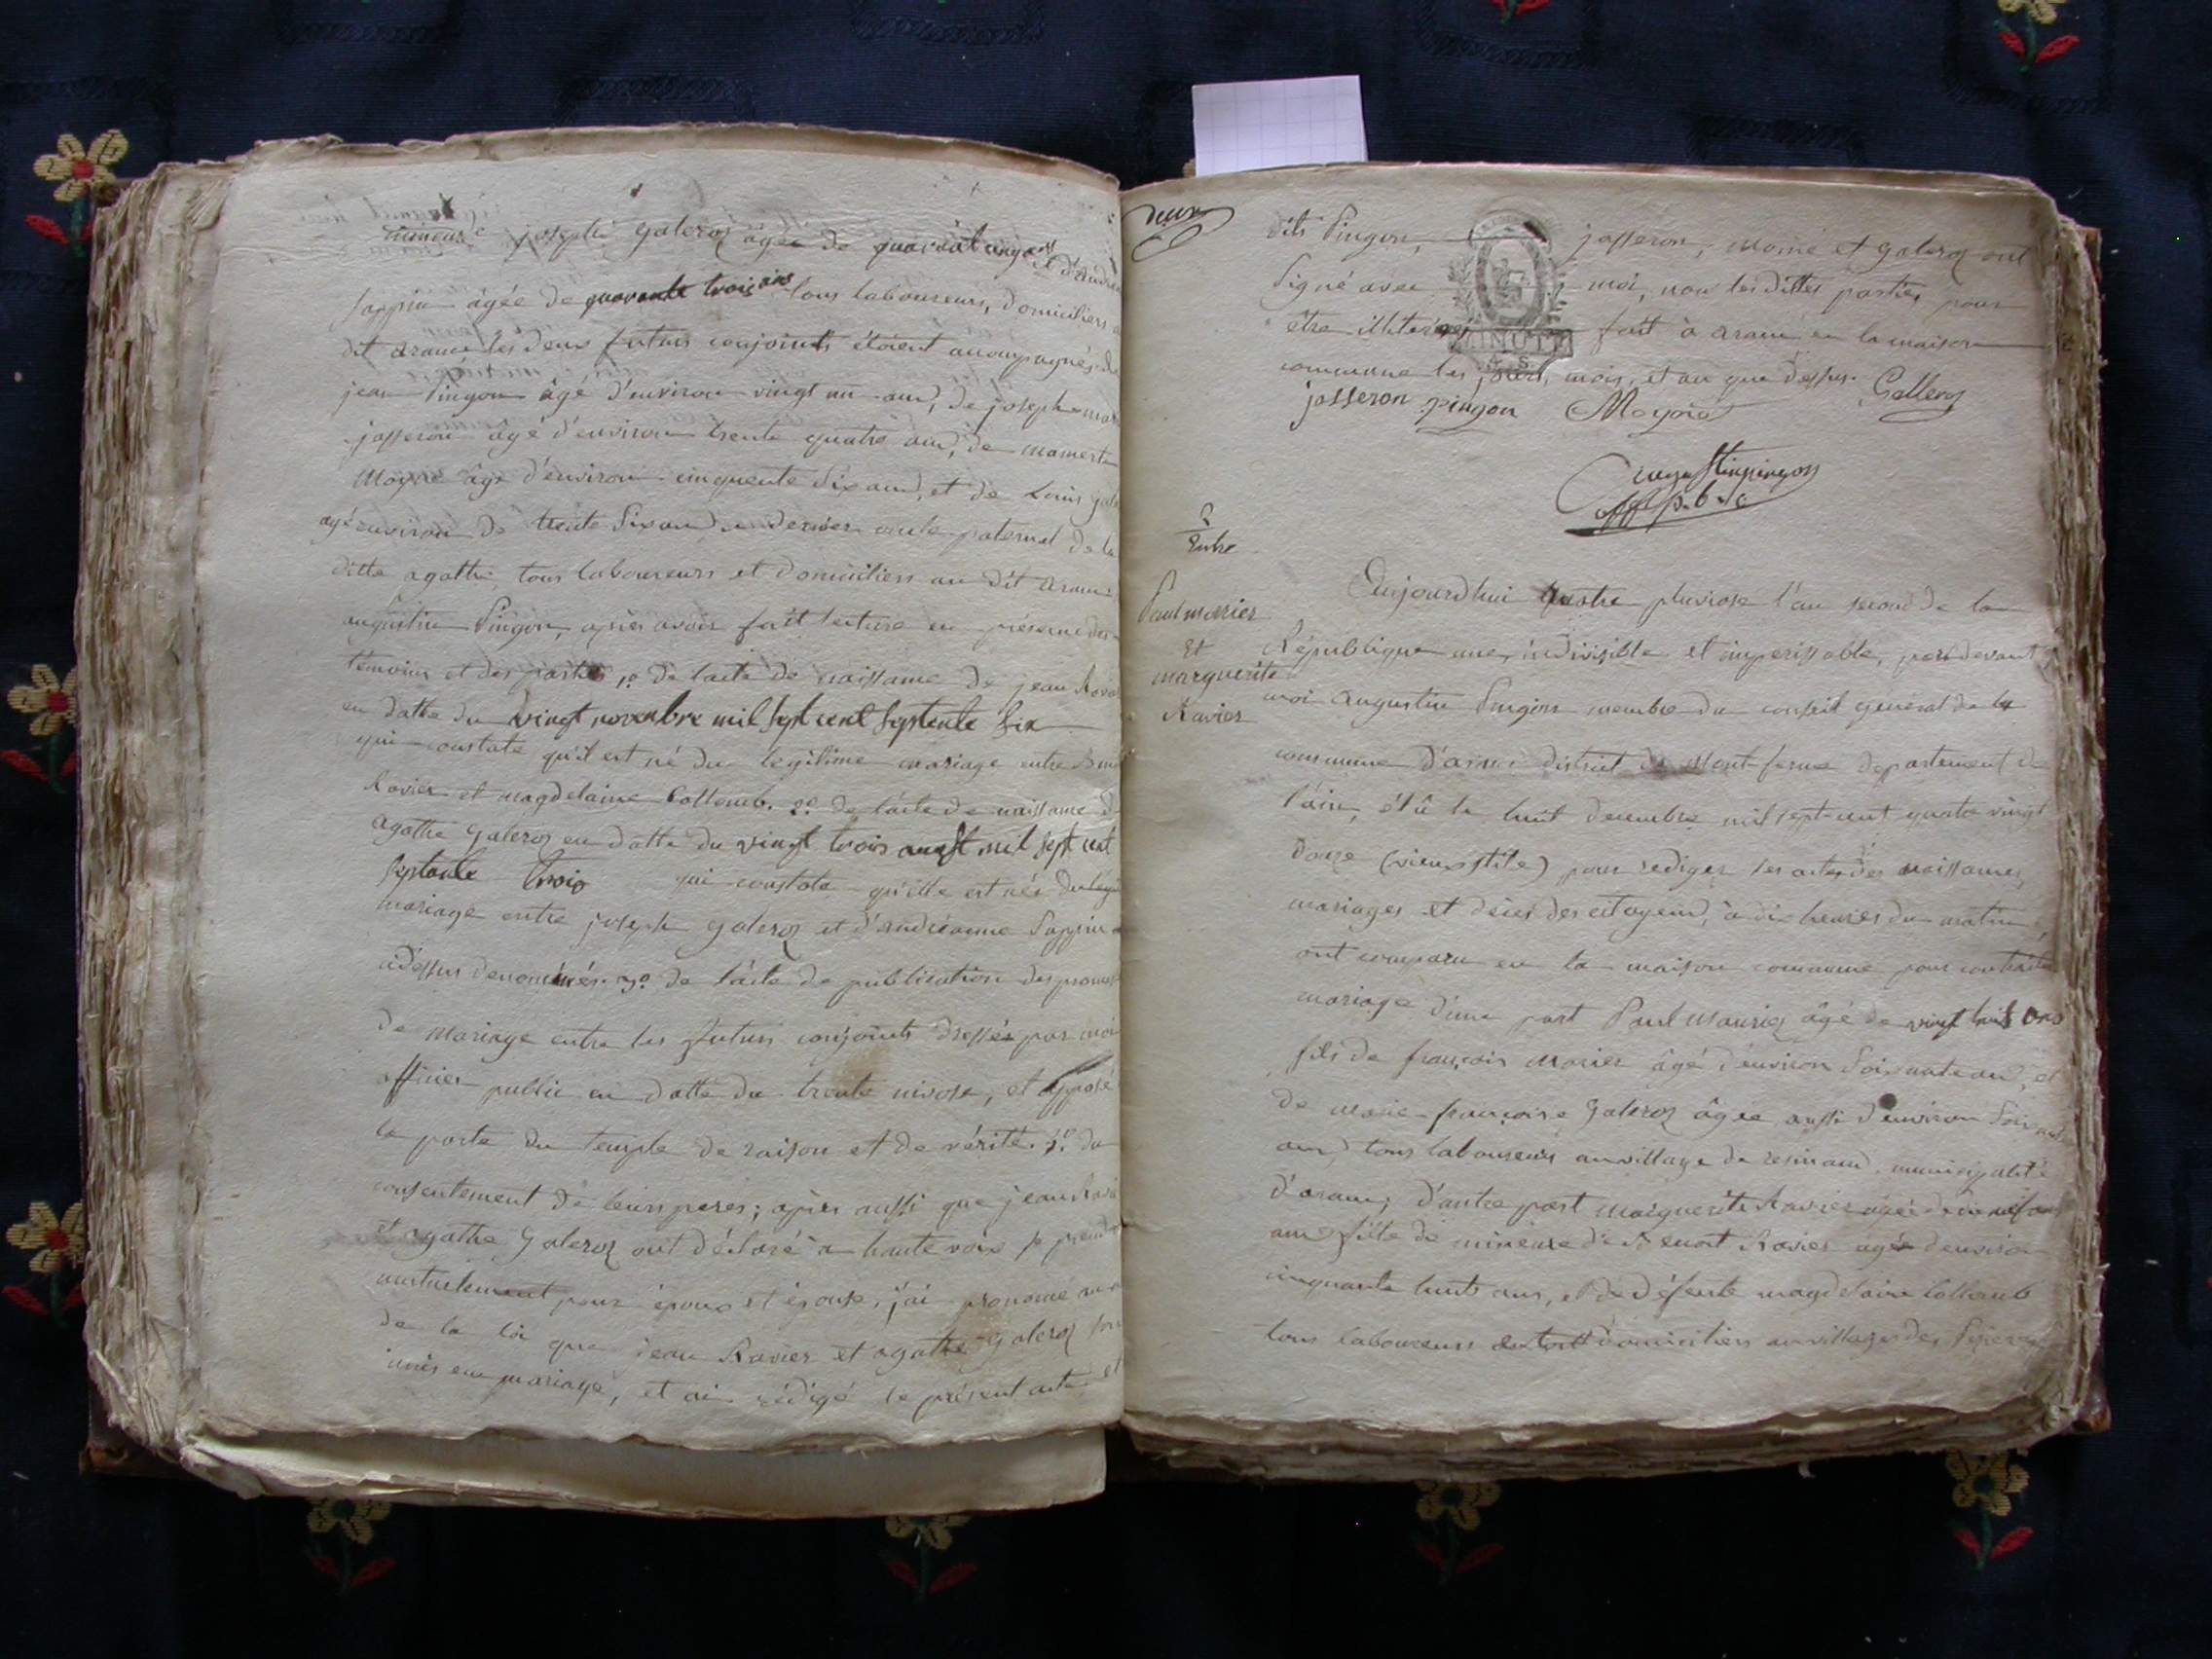 mineure joseph galeroz agée de quarante cinq ans et d'André
sappin âgée de quarante trois ans tous laboureurs, domiciliers
dit aranc les deux futurs conjoints étoient accompagnés de
jean Pingon âgé d'environ vingt un ans, de joseph
josseron âgé d'environ trente quatre ans, de
Moyne âgé d'environ cinquente six ans, et de Louis
agé environ de trente six ans dernier oncle paternel de la
ditte agathe tous laboureurs et domiciliers au dit aranc
augustin Pingon, après avoir fait lecture en présence des
témoins et des parties 1.º de l'acte de naissance de jean
en datte du vingt novembre mil sept cent septente six
qui constate qu'il est né du legitime mariage entre
Ravier et magdelaine Collomb. 2.º de l'acte de naissance d
agathe galeroz en datte du vingt trois aoust mil sept cent
septante trois qui constate qu'elle est née du
mariage entre joseph galeroz et d'andréanne sappin
cidessus denommés. 3.º de l'acte de publication des
de mariage entre les futurs conjoints dressée par moi
officier public en datte du trente nivose, et apposé
la porte du temple de raison et de vérité. du
consentement de leurs peres; après aussi que jean
et agathe galeroz ont déclaré a haute voix se prendre
mutuelement pour époux et épouse, j'ai prononcé
de la loi que jean Ravier et agathe galeroz
unis en mariage, et ai rédigé le présent acte et
deux
dits Pingon, josseron, Moine et galeroz ont
signé avec moi, non les dittes parties pour
être illiterées fait à aranc en la maison
commune les jours, mois, et an que dessus.
MINUTE
josseron pingon Moyne Galleroz
augustin pingon
off p.b.c
Entre
Paul morier
Et
marguerite
Ravier
Aujourdhui quatre pluviose l'an second de la
République une, indivisible et imperissable, par devant
moi augustin Pingon membre du conseil général de la
commune d'aranc district de Mont-ferme departement de
l'ain, élû le huit decembre mil sept-cent quatre vingt
douze (vieux stile) pour rediger les actes des naissances,
mariages et décès des citoyens, à dix heures du matin,
ont comparu en la maison commune pour contracter
mariage d'une part Paul Mourier âgé de vingt huit ans
fils de françois morier âgé d'environ soixante ans, et
de marie françoise galeroz âgée aussi d'environ soixante
ans, tous laboureurs au village de resinand municipalité
d'aranc; d'autre part marguerite Ravier agée de dix neuf ans
ans fille de mineure de Benoit Ravier agé d'environ
cinquante huit ans, et de défunte magdelaine Collomb
tous laboureurs domiciliers au village des